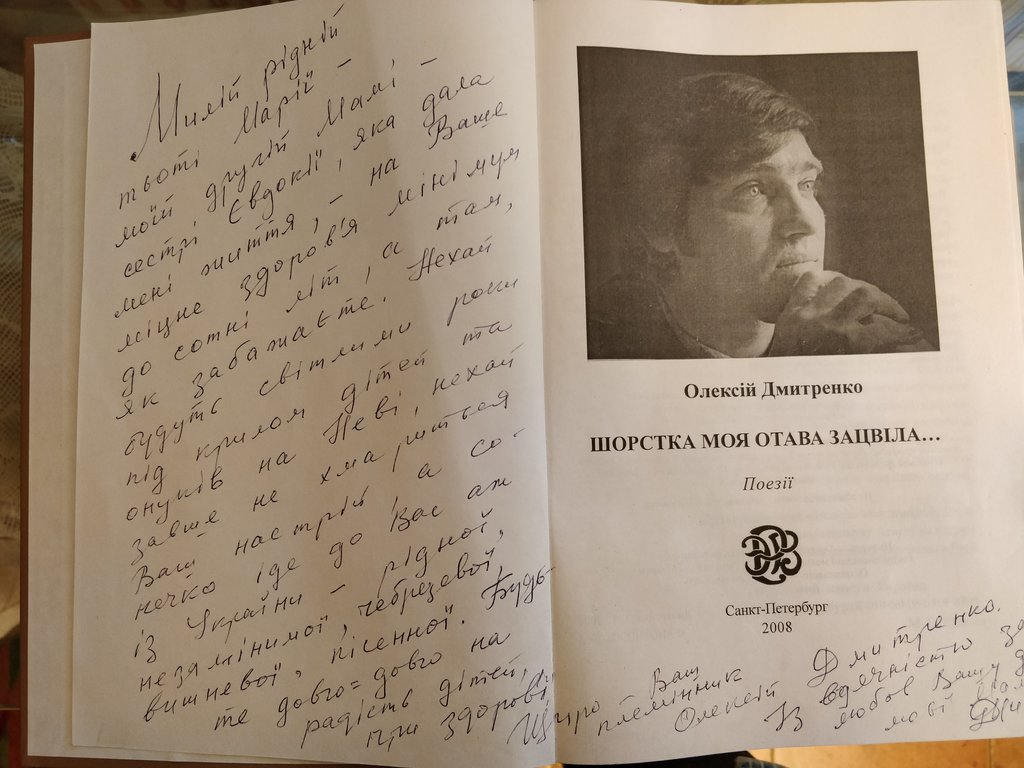 Милій рідній
тьоті Марії –
моїй другій Мамі –
сестрі Євдокії, яка дала
мені життя, – на Ваше
міцне здоров'я мінімум
до сотні літ, а там,
як забажаєте. Нехай
будуть світлими роки
під крилом дітей та
онуків на Неві, нехай
завше не хмариться
Ваш настрій, а со-
нечко іде до Вас аж
із України – рідної,
незамінимої, чебрецевої,
вишневої, пісенної. Будь-
те довго-довго на
радість дітей,
при здоров'ї
Щиро Ваш
племінник
Олексій Дмитренко.
Із вдячністю за
любов Вашу до
мові
Олексій Дмитренко
ШОРСТКА МОЯ ОТАВА ЗАЦВІЛА...
Поезії
Санкт-Петербург
2008